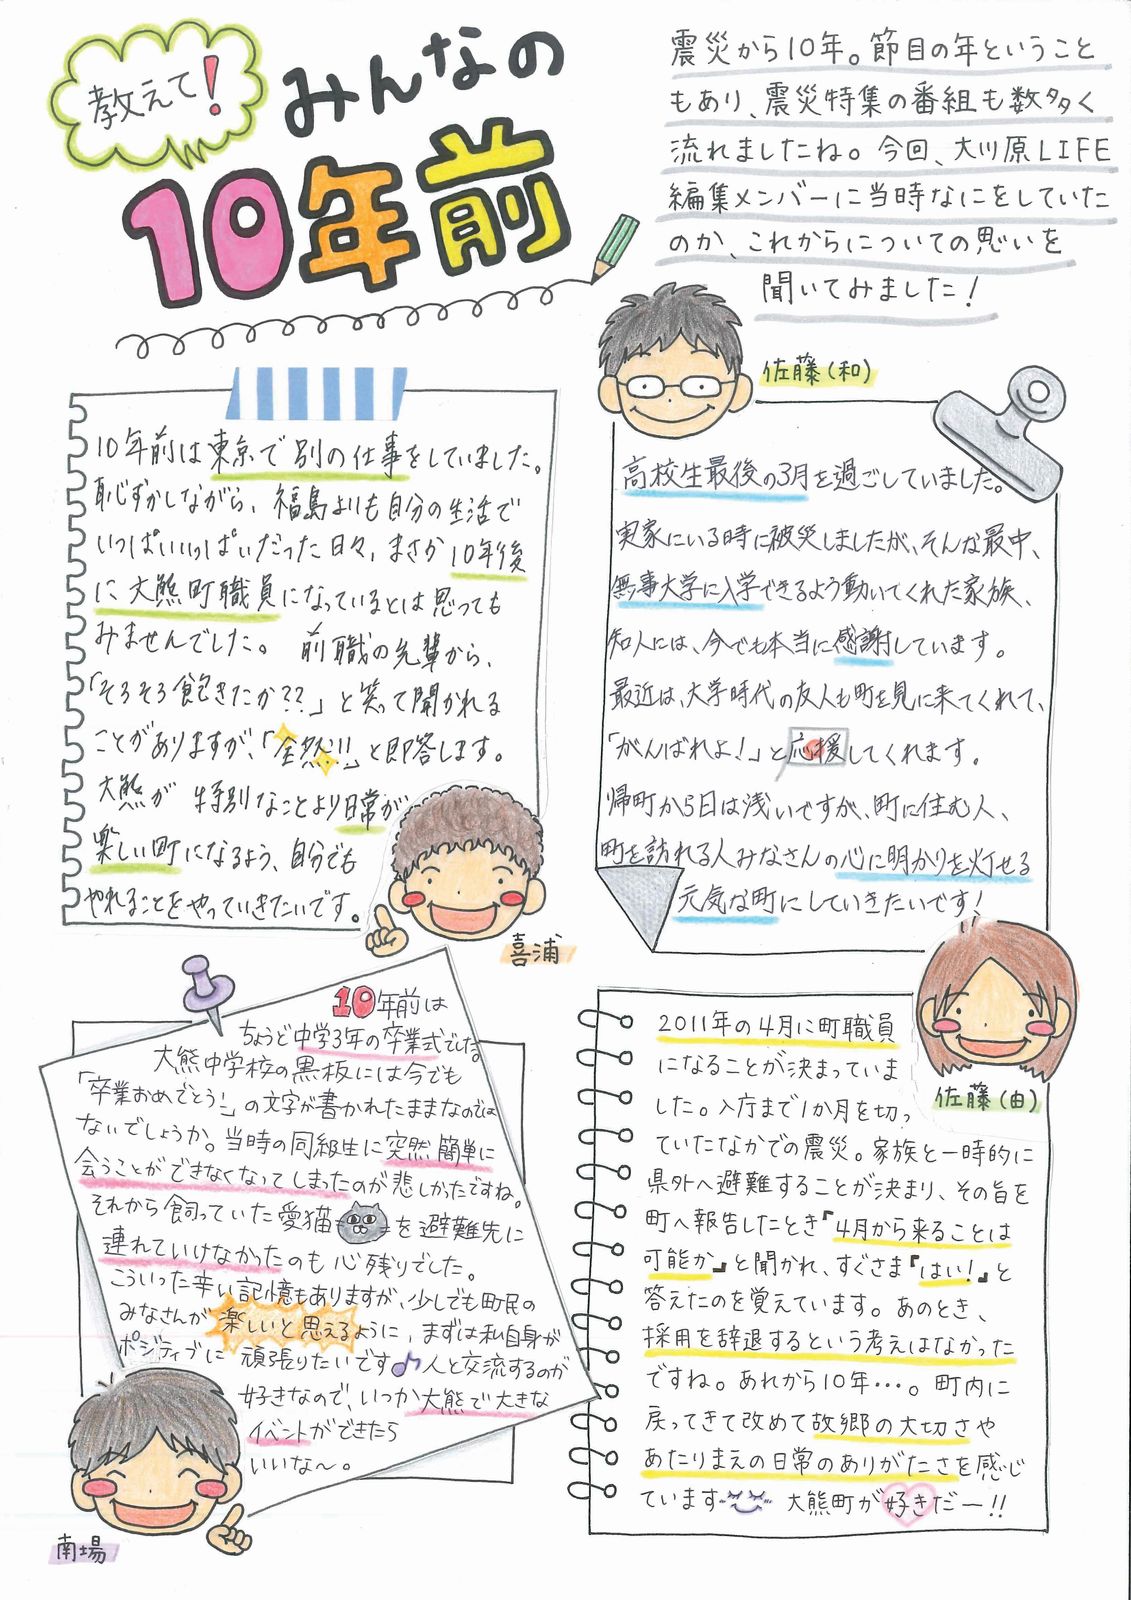 教えて!
みんなの
10年前
震災から10年。節目の年ということ
もあり、震災特集の番組も数多く
流れましたね。今回、大川原LIFE
編集メンバーに当時なにをしていた
のか、これからについての思いを
聞いてみました!
10年前は東京で別の仕事をしていました。
恥ずかしながら、福島よりも自分の生活で
いっぱいいっぱいだった日々、まさか10年後
に大熊町職員になっているとは思っても
みませんでした。前職の先輩から、
「そろそろ飽きたか??」と笑って聞かれる
ことがありますが、「全然!!」と即答します。
大熊が特別なことより日常が
楽しい町になるよう、自分でも
やれることをやっていきたいです。
喜浦
佐藤(和)
高校生最後の3月を過ごしていました。
実家にいる時に被災しましたが、そんな最中、
無事大学に入学できるよう動いてくれた家族、
知人には、今でも本当に感謝しています。
最近は、大学時代の友人も町を見に来てくれて、
「がんばれよ!」と応援してくれます。
帰町から日は浅いですが、町に住む人、
町を訪れる人みなさんの心に明かりを灯せる
元気な町にしていきたいです!
10年前は
ちょうど中学3年の卒業式でした。
大熊中学校の黒板には今でも
「卒業おめでとう!」の文字が書かれたままなのでは
ないでしょうか。当時の同級生に突然簡単に
会うことができなくなってしまったのが悲しかったですね。
それから飼っていた愛猫を避難先に
連れていけなかったのも心残りでした。
こういった辛い記憶もありますが、少しでも町民の
みなさんが楽しいと思えるように、まずは私自身が
ポジティブに頑張りたいです♪人と交流するのが
好きなので、いつか大熊で大きな
イベントができたら
いいな〜。
南場
佐藤(由)
2011年の4月に町職員
になることが決まっていま
した。入庁まで1か月を切っ
ていたなかでの震災。家族と一時的に
県外へ避難することが決まり、その旨を
町へ報告したとき『4月から来ることは
可能か』と聞かれ、すぐさま『はい!』と
答えたのを覚えています。あのとき、
採用を辞退するという考えはなかった
ですね。あれから10年…。町内に
戻ってきて改めて故郷の大切さや
あたりまえの日常のありがたさを感じ
ています 大熊町が好きだー!!